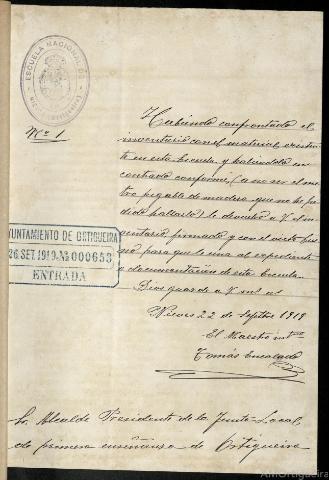 ESCUELA NACIONAL DE
Nº 1
Habiendo confrontado el
inventario con el material existen
te en esta Escuela y habiéndolo en
contrado conforme, (a no ser el me
tro plegable de madera que no he po
dido hallarlo) le devuelvo a V. el in
ventario firmado y con el visto bue
no para que le una al expediente
o documentación de esta Escuela.
Dios guarde a V. ms. as.
Nieves 22 de Septbre 1919
El Maestro intno
Tomás
AYUNTAMIENTO DE ORTIGUEIRA
26 SET. 1919 - Nº 000653
ENTRADA
Sr. Alcalde Presidente de la Junta Local
de primera enseñanza de Ortigueira
AMOrtigueira